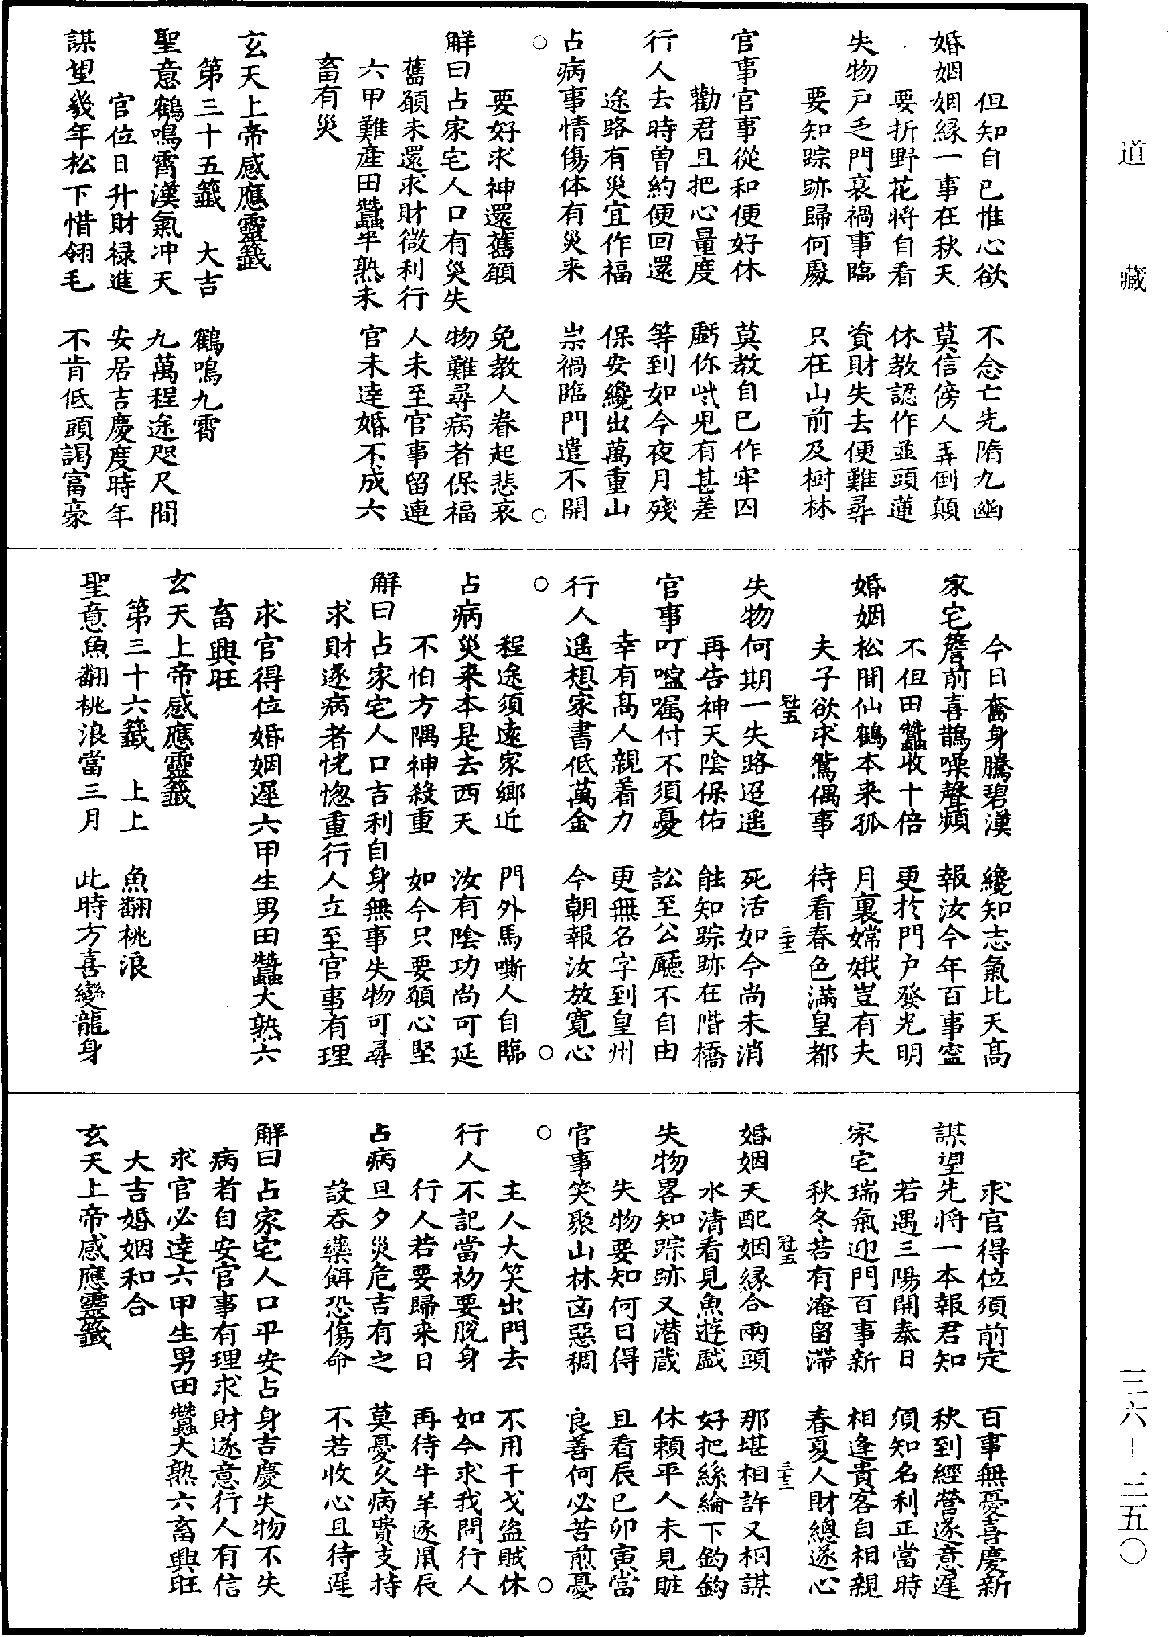 道藏
但知自己惟心欲　不念亡先隋九幽
婚姻姻緣一事在秋天　莫信傍人弄倒顛
要折野花將自看　休教認作並頭蓮
失物戶乏門衰禍事臨　資財失去便難尋
要知踪跡歸何處　只在山前及樹林
官事官事從和便好休　莫教自已作牢囚
勸君且把心量度　虧你些兒有甚差
行人去時曾約便回還　等到如今夜月殘
途路有災宜作福　保安纔出萬重山
占病事情傷体有災来　祟禍臨門遣不開
○　○
要好求神還舊願　免教人眷起悲哀
解曰占家宅人口有災失物難尋病者保福
舊願未還求財微利行人未至官事留連
六甲難產田蠶半熟未官未達婚不成六
畜有災
玄天上帝感應靈籤
第三十五籤　大吉　鶴鳴九霄
聖意鶴鳴霄漢氣冲天　九萬程途咫尺間
官位日升財禄進　安居吉慶度時年
謀望幾年松下惜翎毛　不肯低頭謁富豪
今日奮身騰碧漢　纔知志氣比天高
家宅簷前喜鵲噪聲頻　報汝今年百事寧
不但田蠶收十倍　更於門户發光明
婚姻松間仙鶴本来孤　月裏嫦娥豈有夫
夫子欲求鴛偶事　待看春色滿皇都
失物何期一失路迢遥　死活如今尚未消
再告神天陰保佑　能知踪跡在階橋
官事叮嚀囑付不須憂　訟至公廳不自由
幸有高人親着力　更無名字到皇州
行人遥想家書低萬金　今朝報汝放寛心
○　○
程途須遠家鄉近　門外馬嘶人自臨
占病災来本是去西天　汝有陰功尚可延
不怕方隅神殺重　如今只要願心堅
解曰占家宅人口吉利自身無事失物可尋
求財遂病者恍惚重行人立至官事有理
求官得位婚姻遲六甲生男田蠶大熟六
畜興旺
玄天上帝感應靈籤
第三十六籤　上上　魚翻桃浪
聖意魚翻桃浪當三月　此時方喜變龍身
求官得位須前定　百事無憂喜慶新
謀望先將一本報君知　秋到經營遂意遲
若遇三陽開泰日　須知名利正當時
家宅瑞氣迎門百事新　相逢貴客自相親
秋冬若有淹留滯　春夏人財總遂心
婚姻天配姻緣合兩頭　那堪相許又相謀
水清看見魚遊戲　好把絲綸下釣鉤
失物畧知踪跡又潜藏　休賴平人未見賍
失物要知何日得　且看辰巳卯寅當
官事笑聚山林凶惡稠　良善何必苦煎憂
○　○
主人大笑出門去　不用干戈盗賊休
行人不記當初要脱身　如今求我問行人
行人若要歸来日　再待牛羊逐鼠辰
占病旦夕災危吉有之　莫憂久病費支持
設吞藥餌恐傷命　不若收心且待遲
解曰占家宅人口平安占身吉慶失物不失
病者自安官事有理求財遂意行人有信
求官必達六甲生男田蠶大熟六畜興旺
大吉婚姻和合
玄天上帝感應靈籤
三六－三五〇